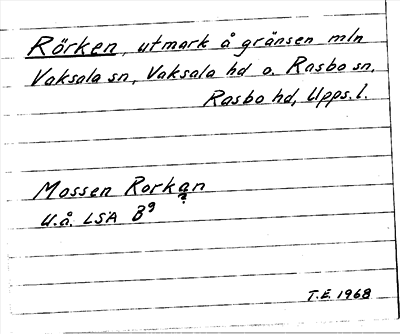 Rörken, utmark å gränsen mln
Vaksala sn, Vaksala hd o. Rasbo sn,
Rasbo hd, Upps. l.
Mossen Rorkan
?
U.å. LSA B9
T.E. 1968